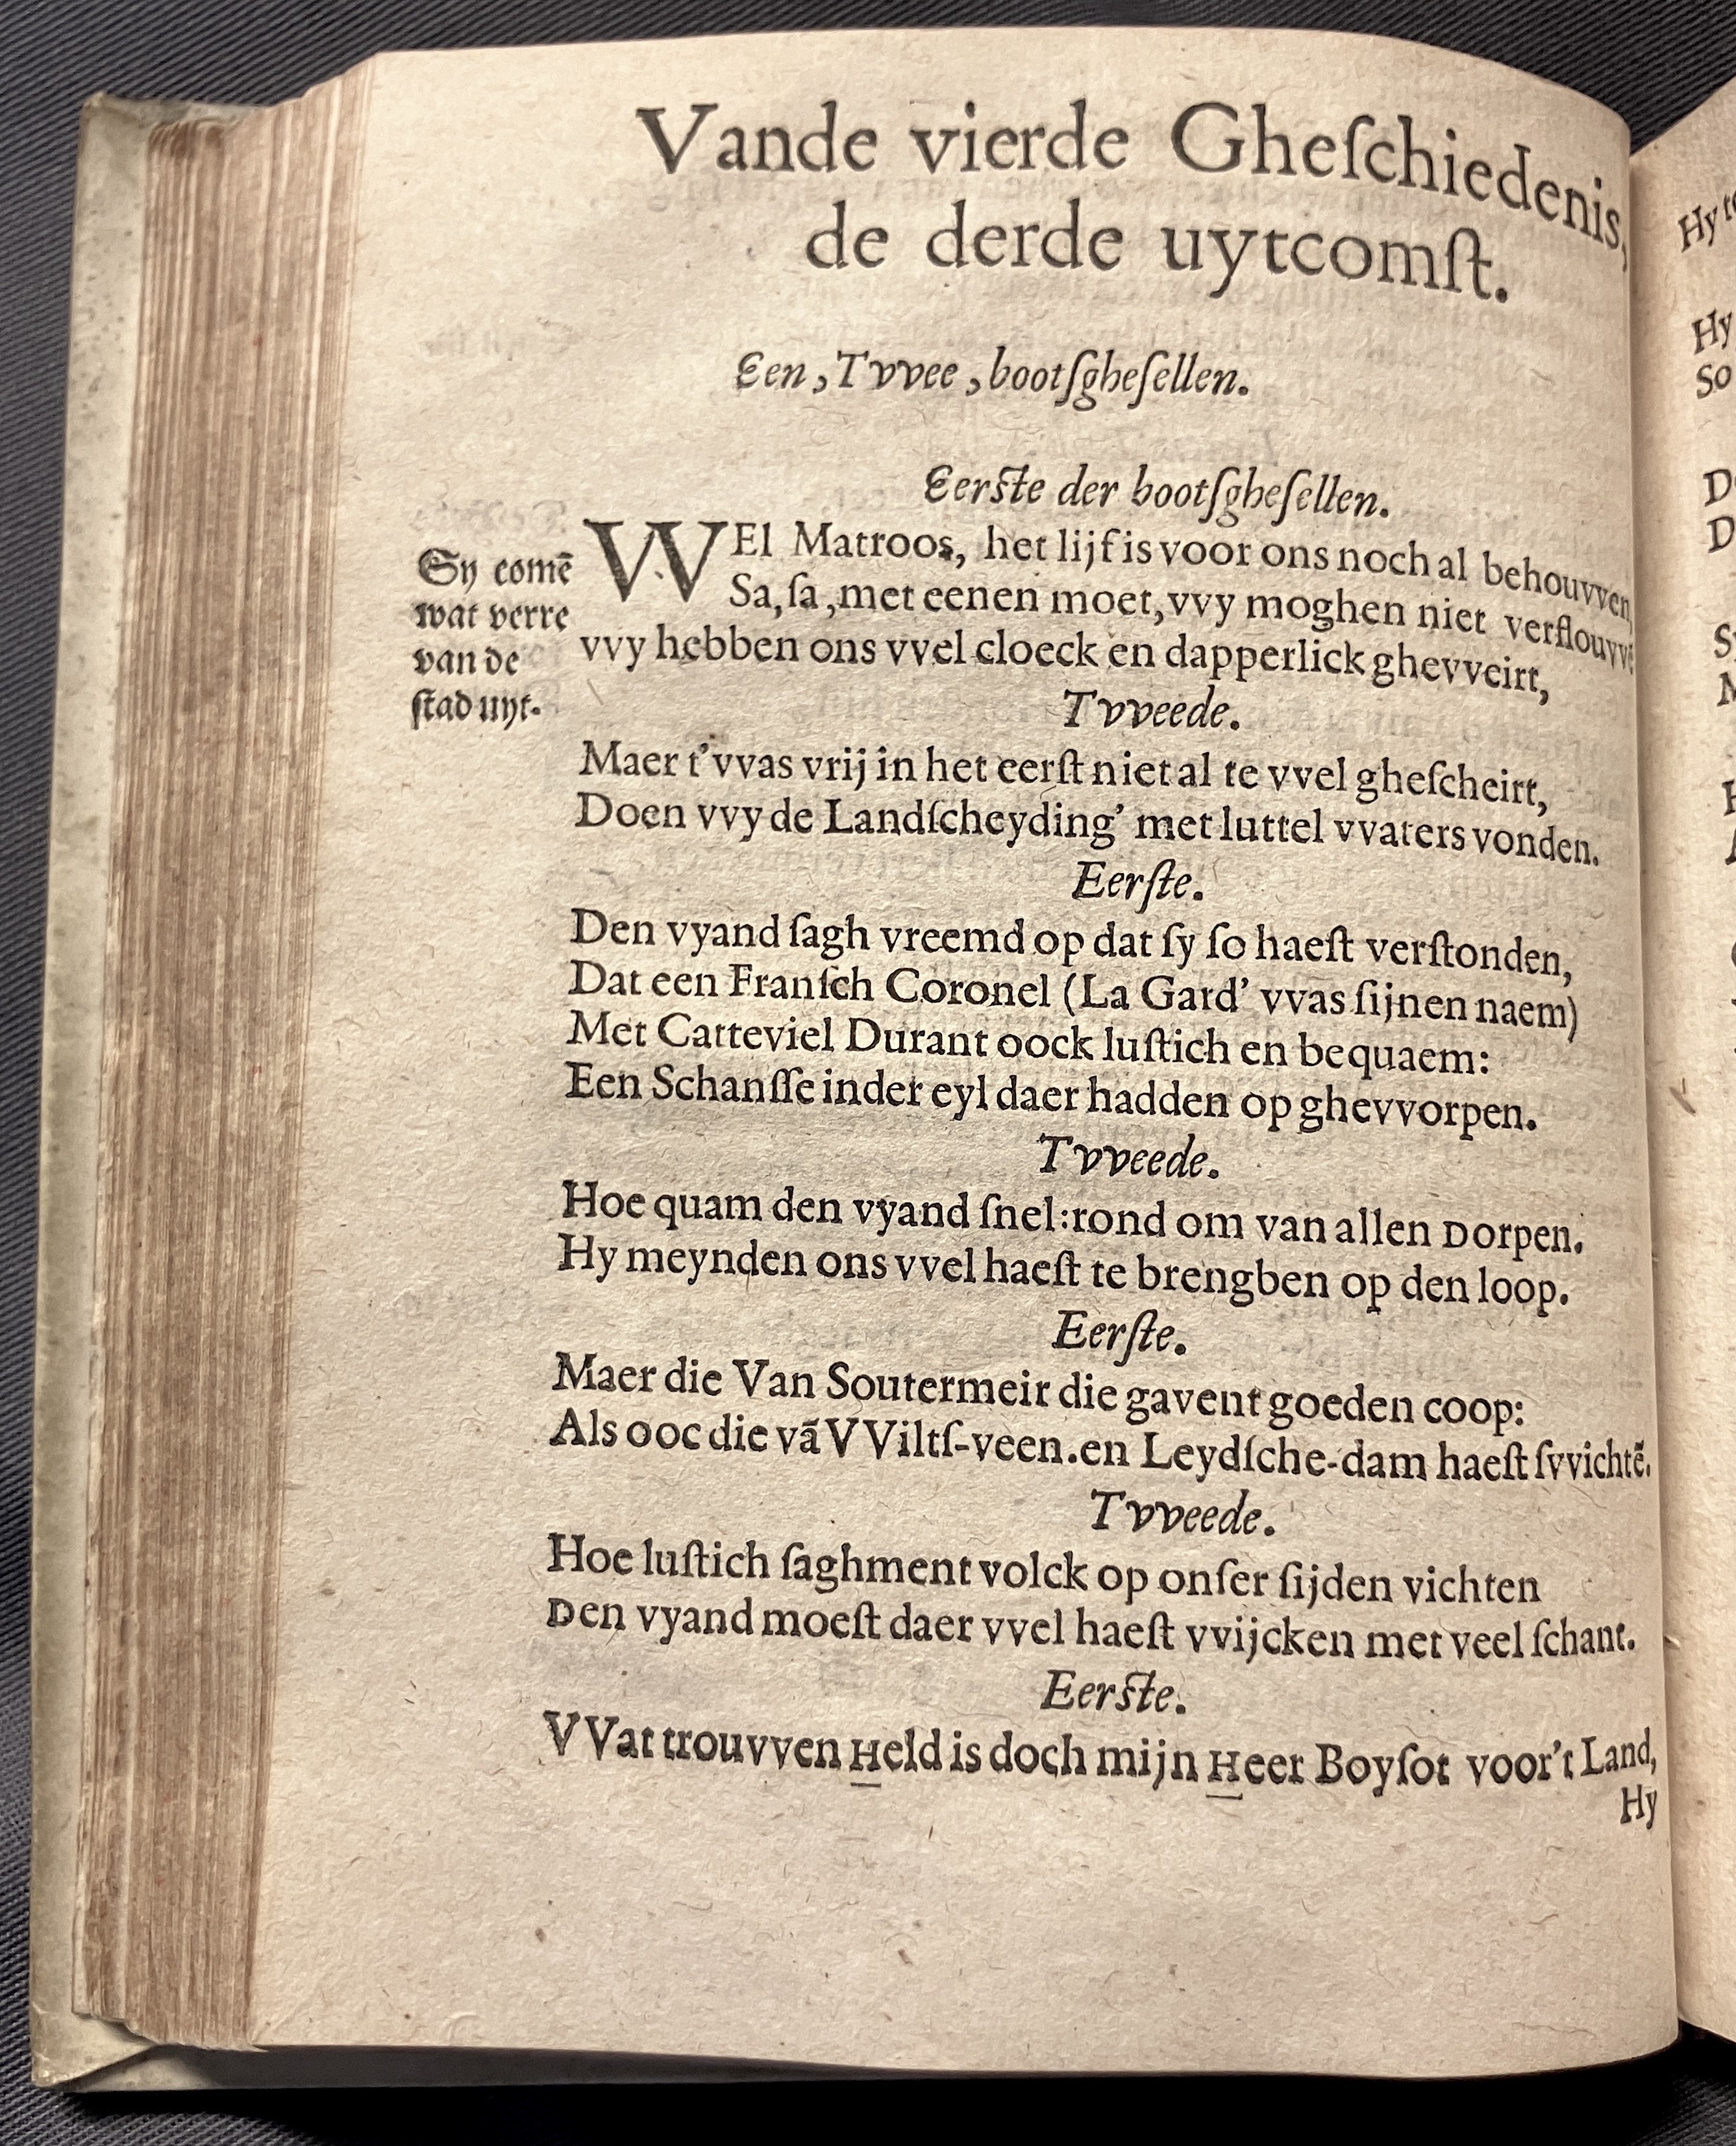 Vande vierde Gheſchiedenis,
de derde uytcomſt.
Een, Tvvee, bootſgheſellen.
Eerſte der bootſgheſellen.
Sy comē
wat verre
van de
ſtad uyt.
WEl Matroos, het lijf is voor ons noch al behouvven,
Sa, ſa, met eenen moet, vvy moghen niet verflouvvē
vvy hebben ons vvel cloeck en dapperlick ghevveirt,
Tvveede.
Maer t'vvas vrij in het eerſt niet al te vvel gheſcheirt,
Doen vvy de Landſcheyding' met luttel vvaters vonden.
Eerſte.
Den vyand ſagh vreemd op dat ſy ſo haeſt verſtonden,
Dat een Franſch Coronel (La Gard' vvas ſijnen naem)
Met Catteviel Durant oock luſtich en bequaem:
Een Schanſſe inder eyl daer hadden op ghevvorpen.
Tvveede.
Hoe quam den vyand ſnel: rond om van allen Dorpen.
Hy meynden ons vvel haeſt te brengben op den loop.
Eerſte.
Maer die Van Soutermeir die gavent goeden coop:
Als ooc die vā VViltſ-veen. en Leydſche-dam haeſt ſvvichtē.
Tvveede.
Hoe luſtich ſaghment volck op onſer ſijden vichten
Den vyand moeſt daer vvel haeſt vvijcken met veel ſchant.
Eerſte.
VVat trouvven Held is doch mijn Heer Boyſot voor't Land,
Hy
Hy
Hy
So